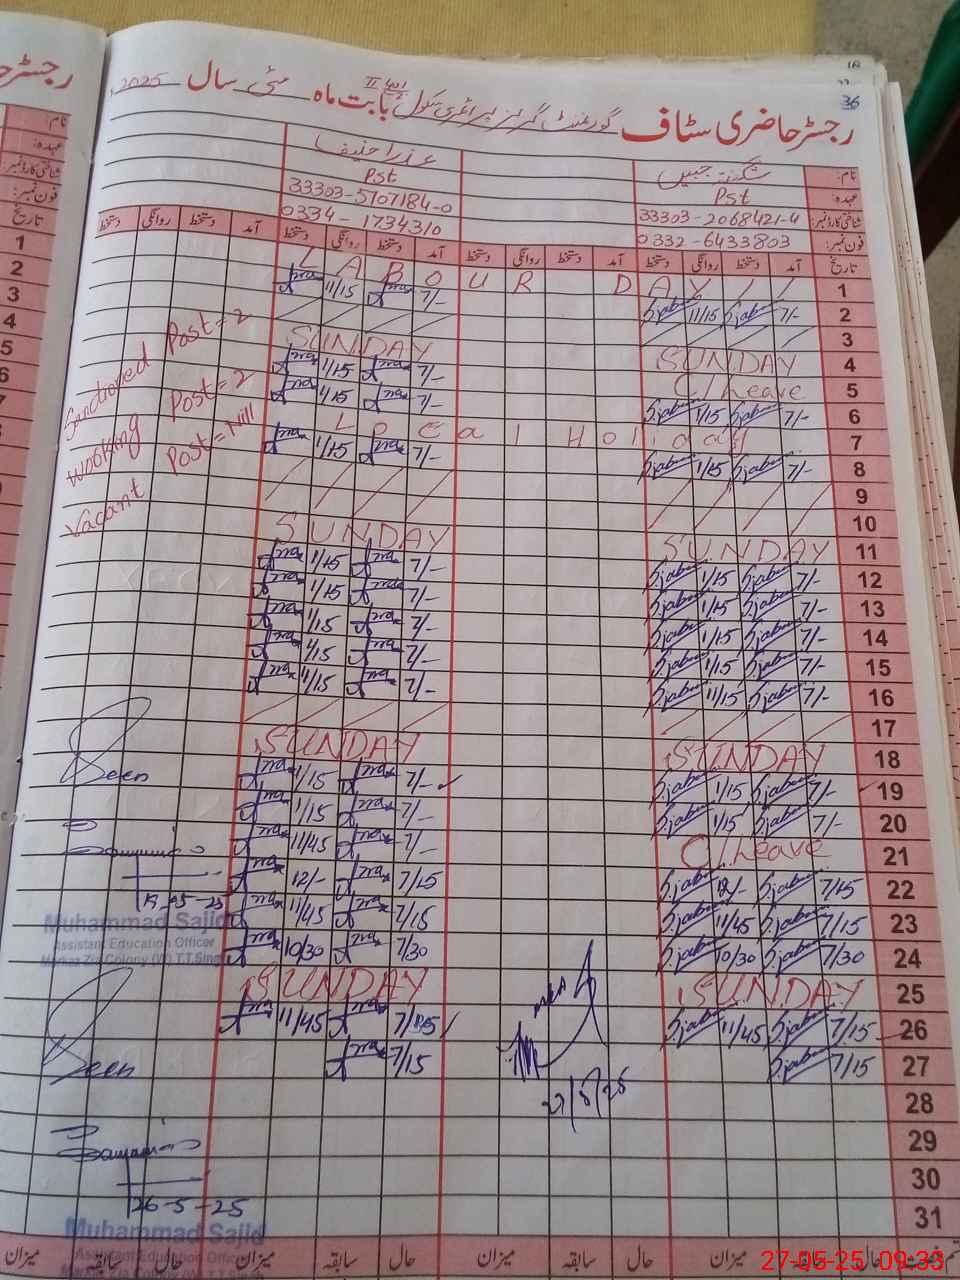 36
رجسٹر حاضری سٹاف گورنمنٹ گرلز پرائمری سکول بابت ماہ مئی سال 2025
نام:
عہدہ: Pst Pst
شناختی کارڈ نمبر: 33303-2068421-4 33303-5707184-0
فون نمبر: 0332-6433803 0334-1734310
تاریخ آمد دستخط روانگی دستخط آمد دستخط روانگی دستخط آمد دستخط روانگی دستخط
1 LABOUR DAY
2 7/- 11/15 7/- 11/15
3
4 SUNDAY SUNDAY
5 C/Leave 7/- 1/15
6 7/- 1/15 7/- 1/15
7 Local Holiday
8 7/- 1/15 7/- 1/15
9
10
11 SUNDAY SUNDAY
12 7/- 1/15 7/- 1/15
13 7/- 1/15 7/- 1/15
14 7/- 1/15 7/- 1/15
15 7/- 1/15 7/- 1/15
16 7/- 11/15 7/- 11/15
17
18 SUNDAY SUNDAY
19 7/- 1/15 7/- 1/15
20 7/- 1/15 7/- 1/15
21 C/Leave 7/- 11/45
22 7/15 12/- 7/15 12/-
23 7/15 11/45 7/15 11/45
24 7/30 10/30 7/30 10/30
25 SUNDAY SUNDAY
26 7/15 11/45 7/15 11/45
27 7/15 7/15
28
29
30
31
Sanctioned Post = 2
Wooking Post = 2
Vacant Post = Nill
Seen
19-05-25
Muhammad Sajid
Assistant Education Officer
Seen
26-5-25
Muhammad Sajid
Assistant Education Officer
27/5/25
حال سابقہ میزان حال سابقہ میزان حال سابقہ میزان
27-05-25 09:33